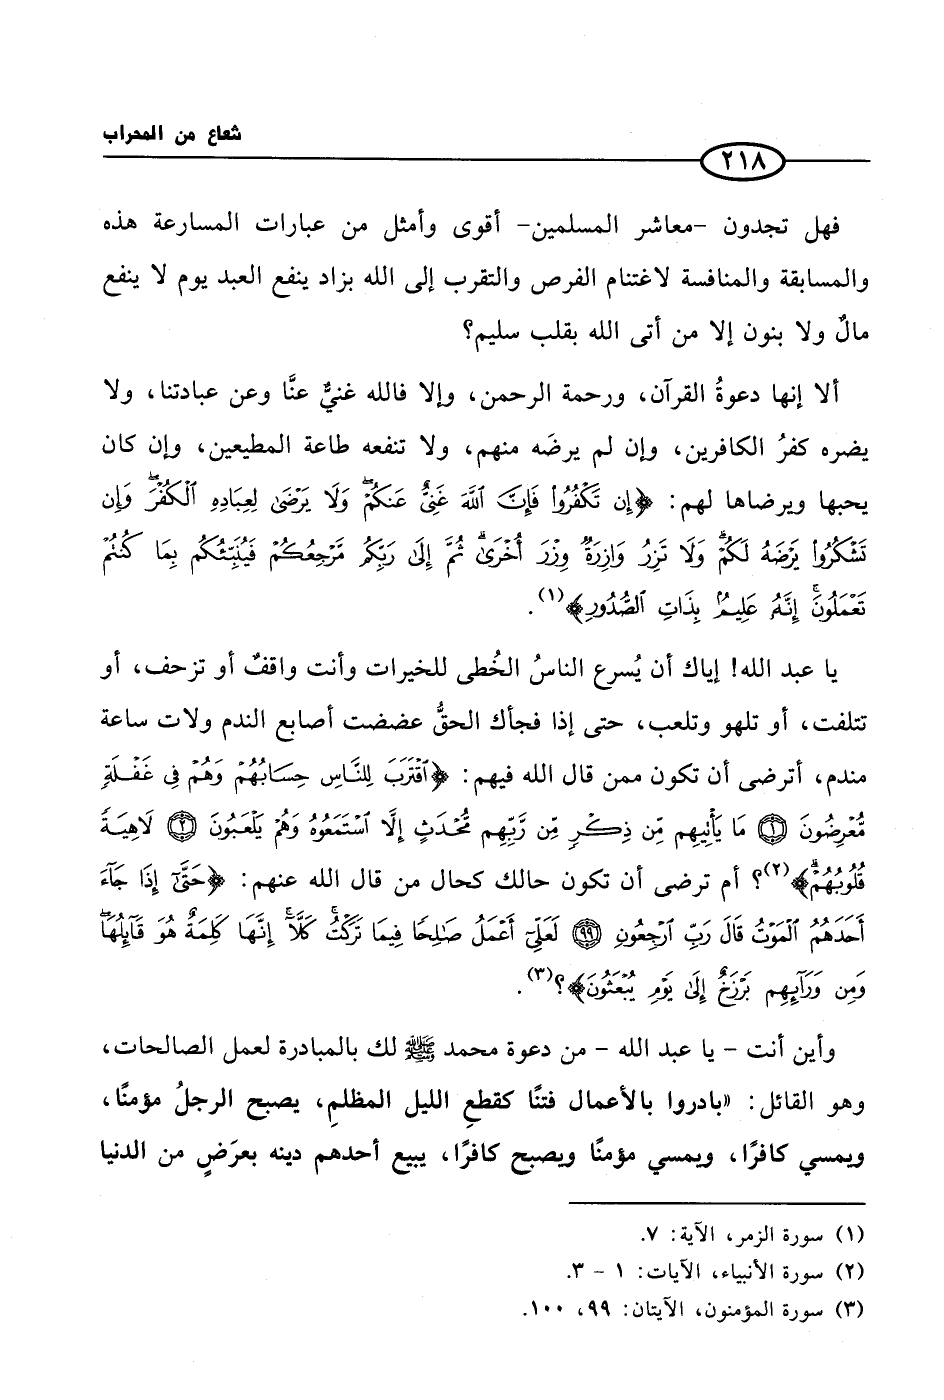 شعاع من المحراب
٢١٨
فهل تجدون -معاشر المسلمين- أقوى وأمثل من عبارات المسارعة هذه
والمسابقة والمنافسة لاغتنام الفرص والتقرب إلى الله بزاد ينفع العبد يوم لا ينفع
مالٌ ولا بنون إلا من أتى الله بقلب سليم؟
ألا إنها دعوةُ القرآن، ورحمة الرحمن، وإلا فالله غنيٌّ عنَّا وعن عبادتنا، ولا
يضره كفرُ الكافرين، وإن لم يرضَه منهم، ولا تنفعه طاعة المطيعين، وإن كان
يحبها ويرضاها لهم: ﴿إِن تَكْفُرُواْ فَإِنَّ ٱللَّهَ غَنِىٌّ عَنكُمْۖ وَلَا يَرْضَىٰ لِعِبَادِهِ ٱلْكُفْرَۖ وَإِن
تَشْكُرُواْ يَرْضَهُ لَكُمْۗ وَلَا تَزِرُ وَازِرَةٌ وِزْرَ أُخْرَىٰۗ ثُمَّ إِلَىٰ رَبِّكُم مَّرْجِعُكُمْ فَيُنَبِّئُكُم بِمَا كُنتُمْ
تَعْمَلُونَۚ إِنَّهُۥ عَلِيمٌۢ بِذَاتِ ٱلصُّدُورِ﴾(١).
يا عبد الله! إياك أن يُسرع الناسُ الخُطى للخيرات وأنت واقفٌ أو تزحف، أو
تتلفت، أو تلهو وتلعب، حتى إذا فجأك الحقُّ عضضت أصابع الندم ولات ساعة
مندم، أترضى أن تكون ممن قال الله فيهم: ﴿ٱقْتَرَبَ لِلنَّاسِ حِسَابُهُمْ وَهُمْ فِى غَفْلَةٍ
مُّعْرِضُونَ ١ مَا يَأْتِيهِم مِّن ذِكْرٍ مِّن رَّبِّهِم مُّحْدَثٍ إِلَّا ٱسْتَمَعُوهُ وَهُمْ يَلْعَبُونَ ٢ لَاهِيَةً
قُلُوبُهُمْۗ﴾(٢)؟ أم ترضى أن تكون حالك كحال من قال الله عنهم: ﴿حَتَّىٰٓ إِذَا جَآءَ
أَحَدَهُمُ ٱلْمَوْتُ قَالَ رَبِّ ٱرْجِعُونِ ٩٩ لَعَلِّىٓ أَعْمَلُ صَٰلِحًا فِيمَا تَرَكْتُۚ كَلَّآۚ إِنَّهَا كَلِمَةٌ هُوَ قَآئِلُهَاۖ
وَمِن وَرَآئِهِم بَرْزَخٌ إِلَىٰ يَوْمِ يُبْعَثُونَ﴾؟(٣).
وأين أنت - يا عبد الله - من دعوة محمد ﷺ لك بالمبادرة لعمل الصالحات،
وهو القائل: «بادروا بالأعمال فتنًا كقطعِ الليل المظلمِ، يصبح الرجلُ مؤمنًا،
ويمسي كافرًا، ويمسي مؤمنًا ويصبح كافرًا، يبيع أحدهم دينه بعرَضٍ من الدنيا
(١) سورة الزمر، الآية: ٧.
(٢) سورة الأنبياء، الآيات: ١ - ٣.
(٣) سورة المؤمنون، الآيتان: ٩٩، ١٠٠.